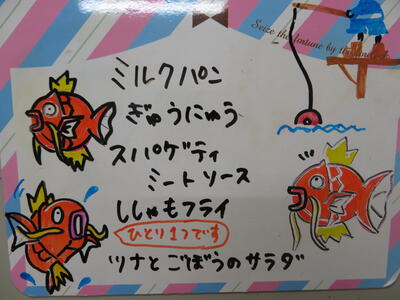 Seize the fortune by the
ミルクパン
ぎゅうにゅう
スパゲティ
ミートソース
ししゃもフライ
ひとり1つです
ツナとごぼうのサラダ